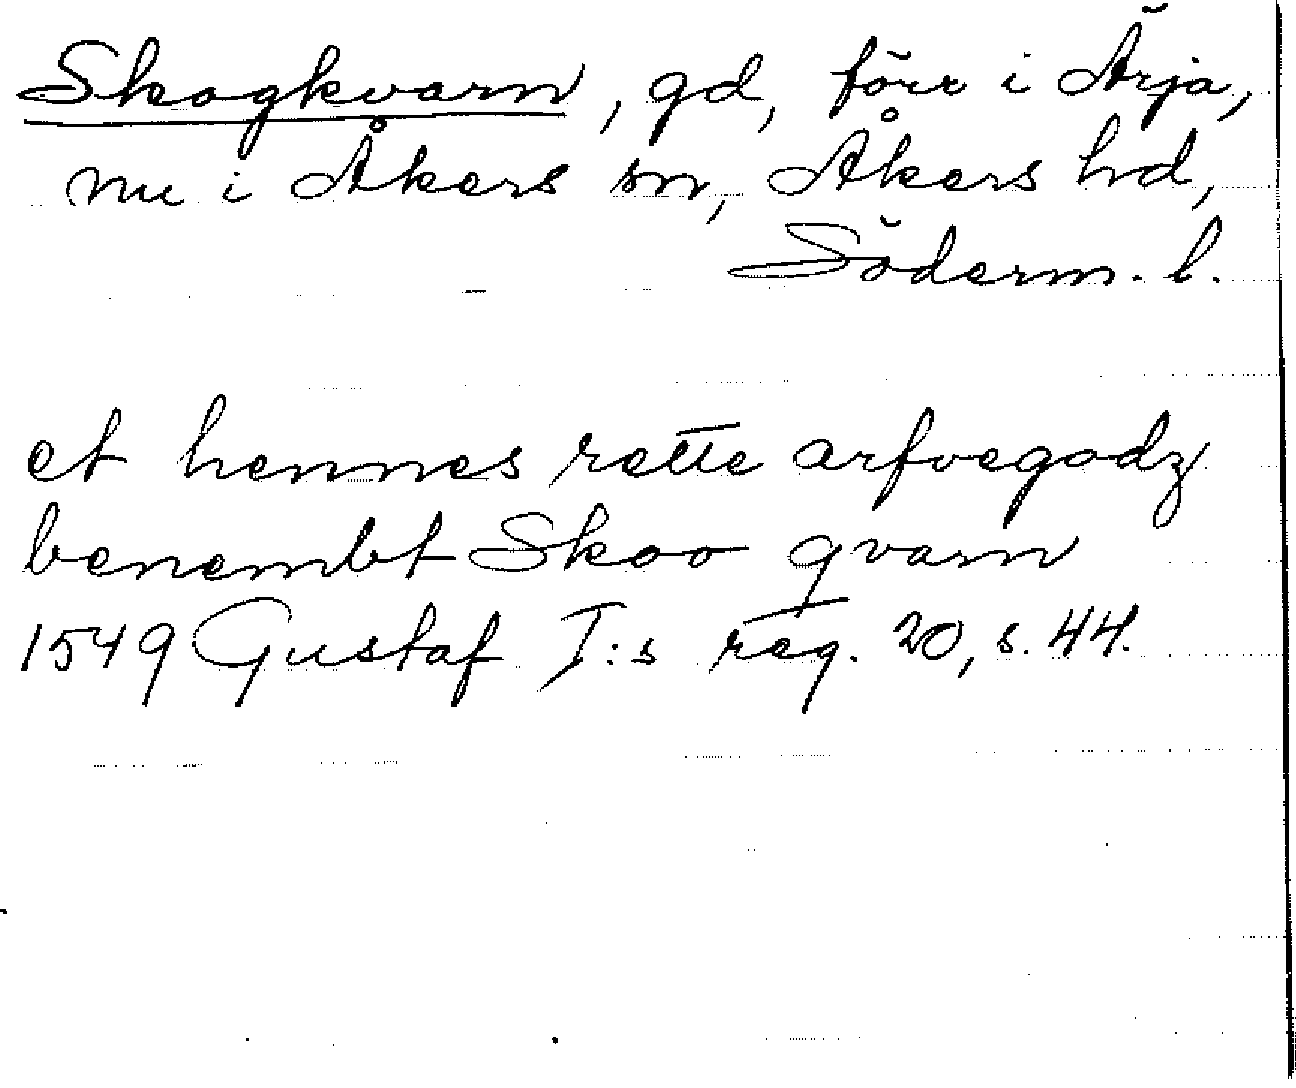 Skogkvarn, gd, förr i Ärja,
nu i Åkers sn, Åkers hd,
Söderm. l.
et hennes rette arfvegodz
benembt Skoo qvarn
1549 Gustaf I:s reg. 20, s. 44.